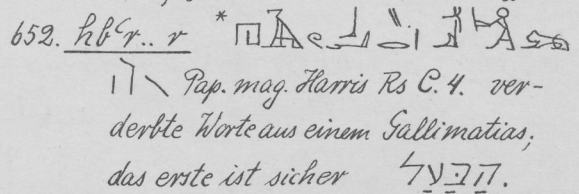 652. hbʿr.. r *
Pap. mag. Harris Rs C. 4. ver-
derbte Worte aus einem Gallimatias;
das erste ist sicher הַבַּעַל.